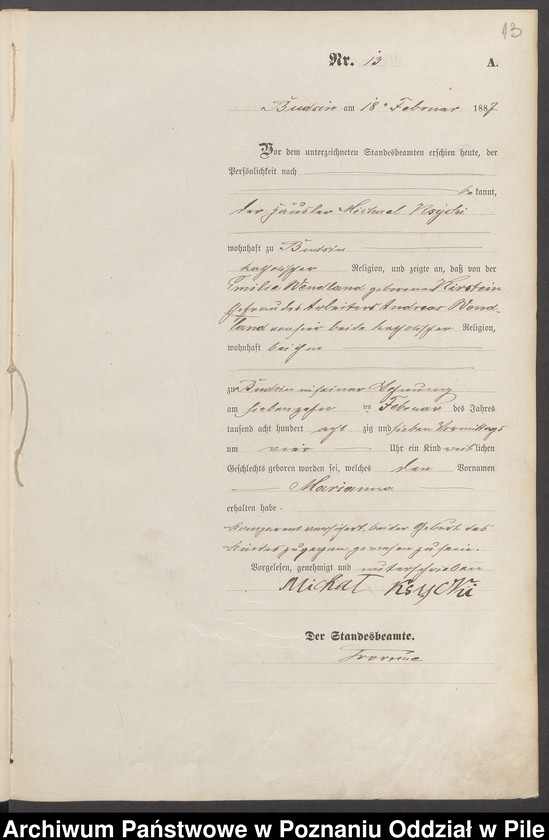 13
Nr. 13
A.
Budsin am 18ten Februar 1887
Vor dem unterzeichneten Standesbeamten erschien heute, der
Persönlichkeit nach
bekannt,
der Häusler Michael Ksycki
wohnhaft zu Budsin
katholischer Religion, und zeigte an, daß von der
Emilie Wendland geborenen Kirstein
Ehefrau des Arbeiters Andreas Wend-
land von hier beide katholischer Religion,
wohnhaft bei ihm
zu Budsin in seiner Wohnung
am siebenzehn ten Februar des Jahres
tausend acht hundert acht zig und sieben Vormittags
um vier Uhr ein Kind weiblichen
Geschlechts geboren worden sei, welches den Vornamen
Marianna
erhalten habe.
Komparent versichert, bei der Geburt des
Kindes zugegen gewesen zu sein.
Vorgelesen, genehmigt und unterschrieben
Michał Ksycki
Der Standesbeamte.
Archiwum Państwowe w Poznaniu Oddział w Pile